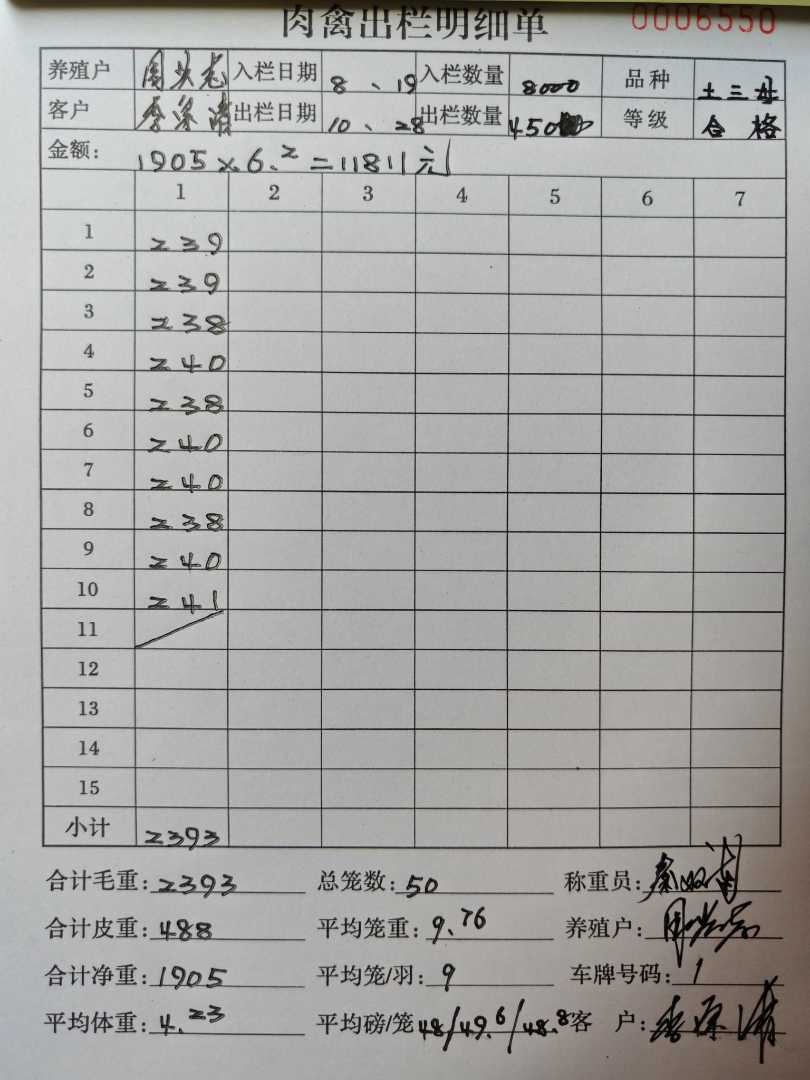 肉禽出栏明细单 0006550
养殖户 周 入栏日期 8、19 入栏数量 8000 品种 土三母
客户 李 出栏日期 10、28 出栏数量 450 等级 合格
金额: 1905×6.2=11811元
1 2 3 4 5 6 7
1 239
2 239
3 238
4 240
5 238
6 240
7 240
8 238
9 240
10 241
11
12
13
14
15
小计 2393
合计毛重: 2393 总笼数: 50 称重员: 秦
合计皮重: 488 平均笼重: 9.76 养殖户: 周
合计净重: 1905 平均笼/羽: 9 车牌号码: 1
平均体重: 4.23 平均磅/笼 48/49.6/48.8 客 户: 李